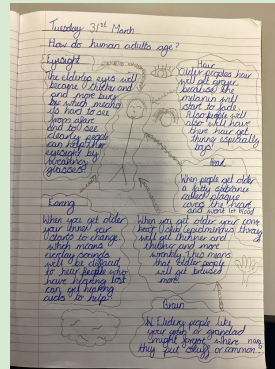 Tuesday 31st March
How do human adults age?
Eyesight
The elderly eyes will
become thicker and
and more burry
by which means
its hard to see
from afare
and to see
clearly people
can help their
eyesight by
wearing
glasses.
Hair
Older peoples hair
will get grayer
because the
melanin will
start to fade.
Also people will
also will have
there hair get
thiner especially
tops.
When people get older
a fatty substance
called plaque
covers the heart
and wont let blood
Earing
When you get older
your inner ear
starts to change.
which means
everyday sounds
will be difficult
to hear people who
have hearing lost
can get hearing
aids to help.
When you get older your
will get thinner and
thicker and more
wrinkly. This means
that older people
will get bruised
more.
Brain
Elderly people like
your granny or grandad
might forget where
they put stuff or common